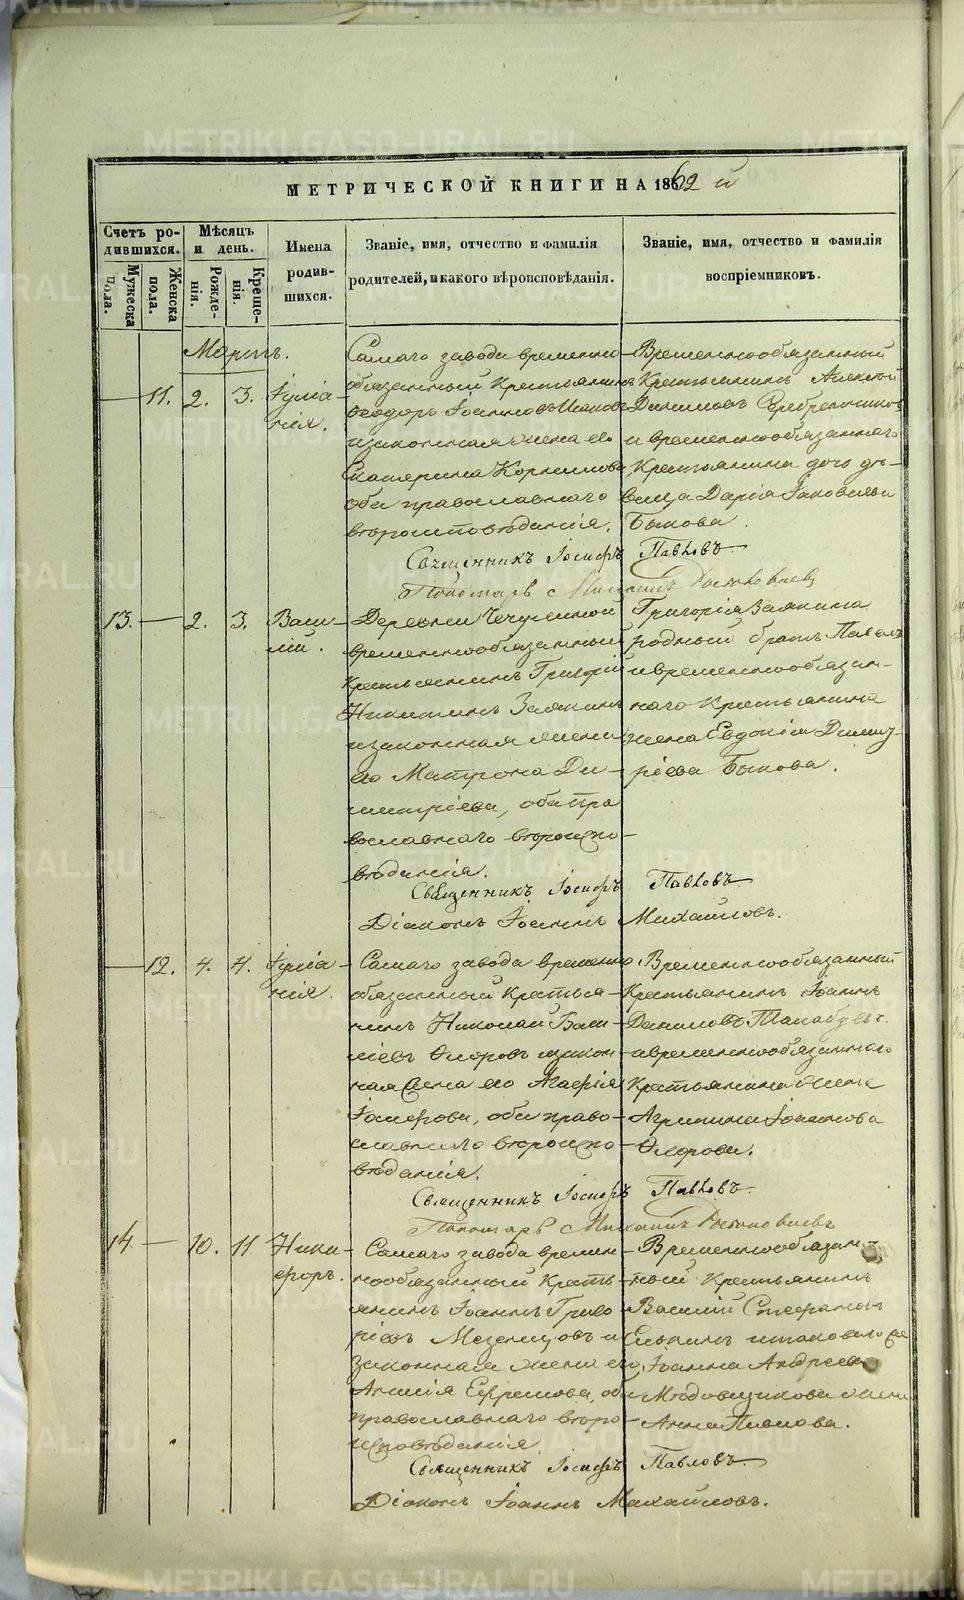 МЕТРИЧЕСКОЙ КНИГИ НА 1862 й
Счетъ ро-
дившихся.
Мужеска
пола.
Женска
пола.
Мѣсяцъ
и день.
Рожде-
нія.
Креще-
нія.
Имена
родив-
шихся.
Званіе, имя, отчество и фамилія
родителей, и какого вѣроисповѣданія.
Званіе, имя, отчество и фамилія
воспріемниковъ.
Мартъ.
11. 2. 3. Іуліа-
нія.
Самаго завода временно-
обязанный Крестьянинъ
Ѳеодоръ Іоанновъ
и законная жена его
Екатерина Корнилова
оба православнаго
вѣроисповѣданія.
Временнообязанный
Крестьянинъ Алексѣй
Даниловъ Серебренниковъ
и временнообязаннаго
Крестьянина дочь дѣ-
вица Дарія Іаковлева
Быкова.
Священникъ Іосифъ Павловъ.
Пономарь Михаилъ
13. 2. 3. Васи-
лій.
Деревни
временнообязанный
Крестьянинъ Григорій
Никитинъ Заякинъ
и законная жена
его Матрона Ди-
митріева, оба пра
вославнаго вѣроиспо-
вѣданія.
Григорія Заякина
родный братъ Павелъ
и временнообязан-
наго Крестьянина
жена Евдокія Димит-
ріева Быкова.
Священникъ Іосифъ Павловъ
Діаконъ Іоаннъ Михайловъ.
12. 4. 4. Іуліа-
нія.
Самаго завода временно
обязанный Крестья-
нинъ Николай Васи-
ліевъ и закон-
ная жена его Агафія
Іосифова, оба право-
славнаго вѣроиспо-
вѣданія.
Временнообязанный
Крестьянинъ Іоаннъ
Даниловъ
и временнообязаннаго
Крестьянина жена
Агрипина Іоаннова
Священникъ Іосифъ Павловъ.
Пономарь Михаилъ
14 10. 11 Ники-
форъ.
Самаго завода времен-
нообязанный Кресть-
янинъ Іоаннъ Григо
ріевъ Мезенцовъ и
законная жена его
Анисія Ефремова, оба
православнаго вѣро-
исповѣданія
Временнообязан-
ный Крестьянинъ
Василій Стефановъ
Іоанна Андреева
Мѣдовщикова жена
Анна Павлова.
Священникъ Іосифъ Павловъ.
Діаконъ Іоаннъ Михайловъ.
METRIKI.GASO-URAL.RU